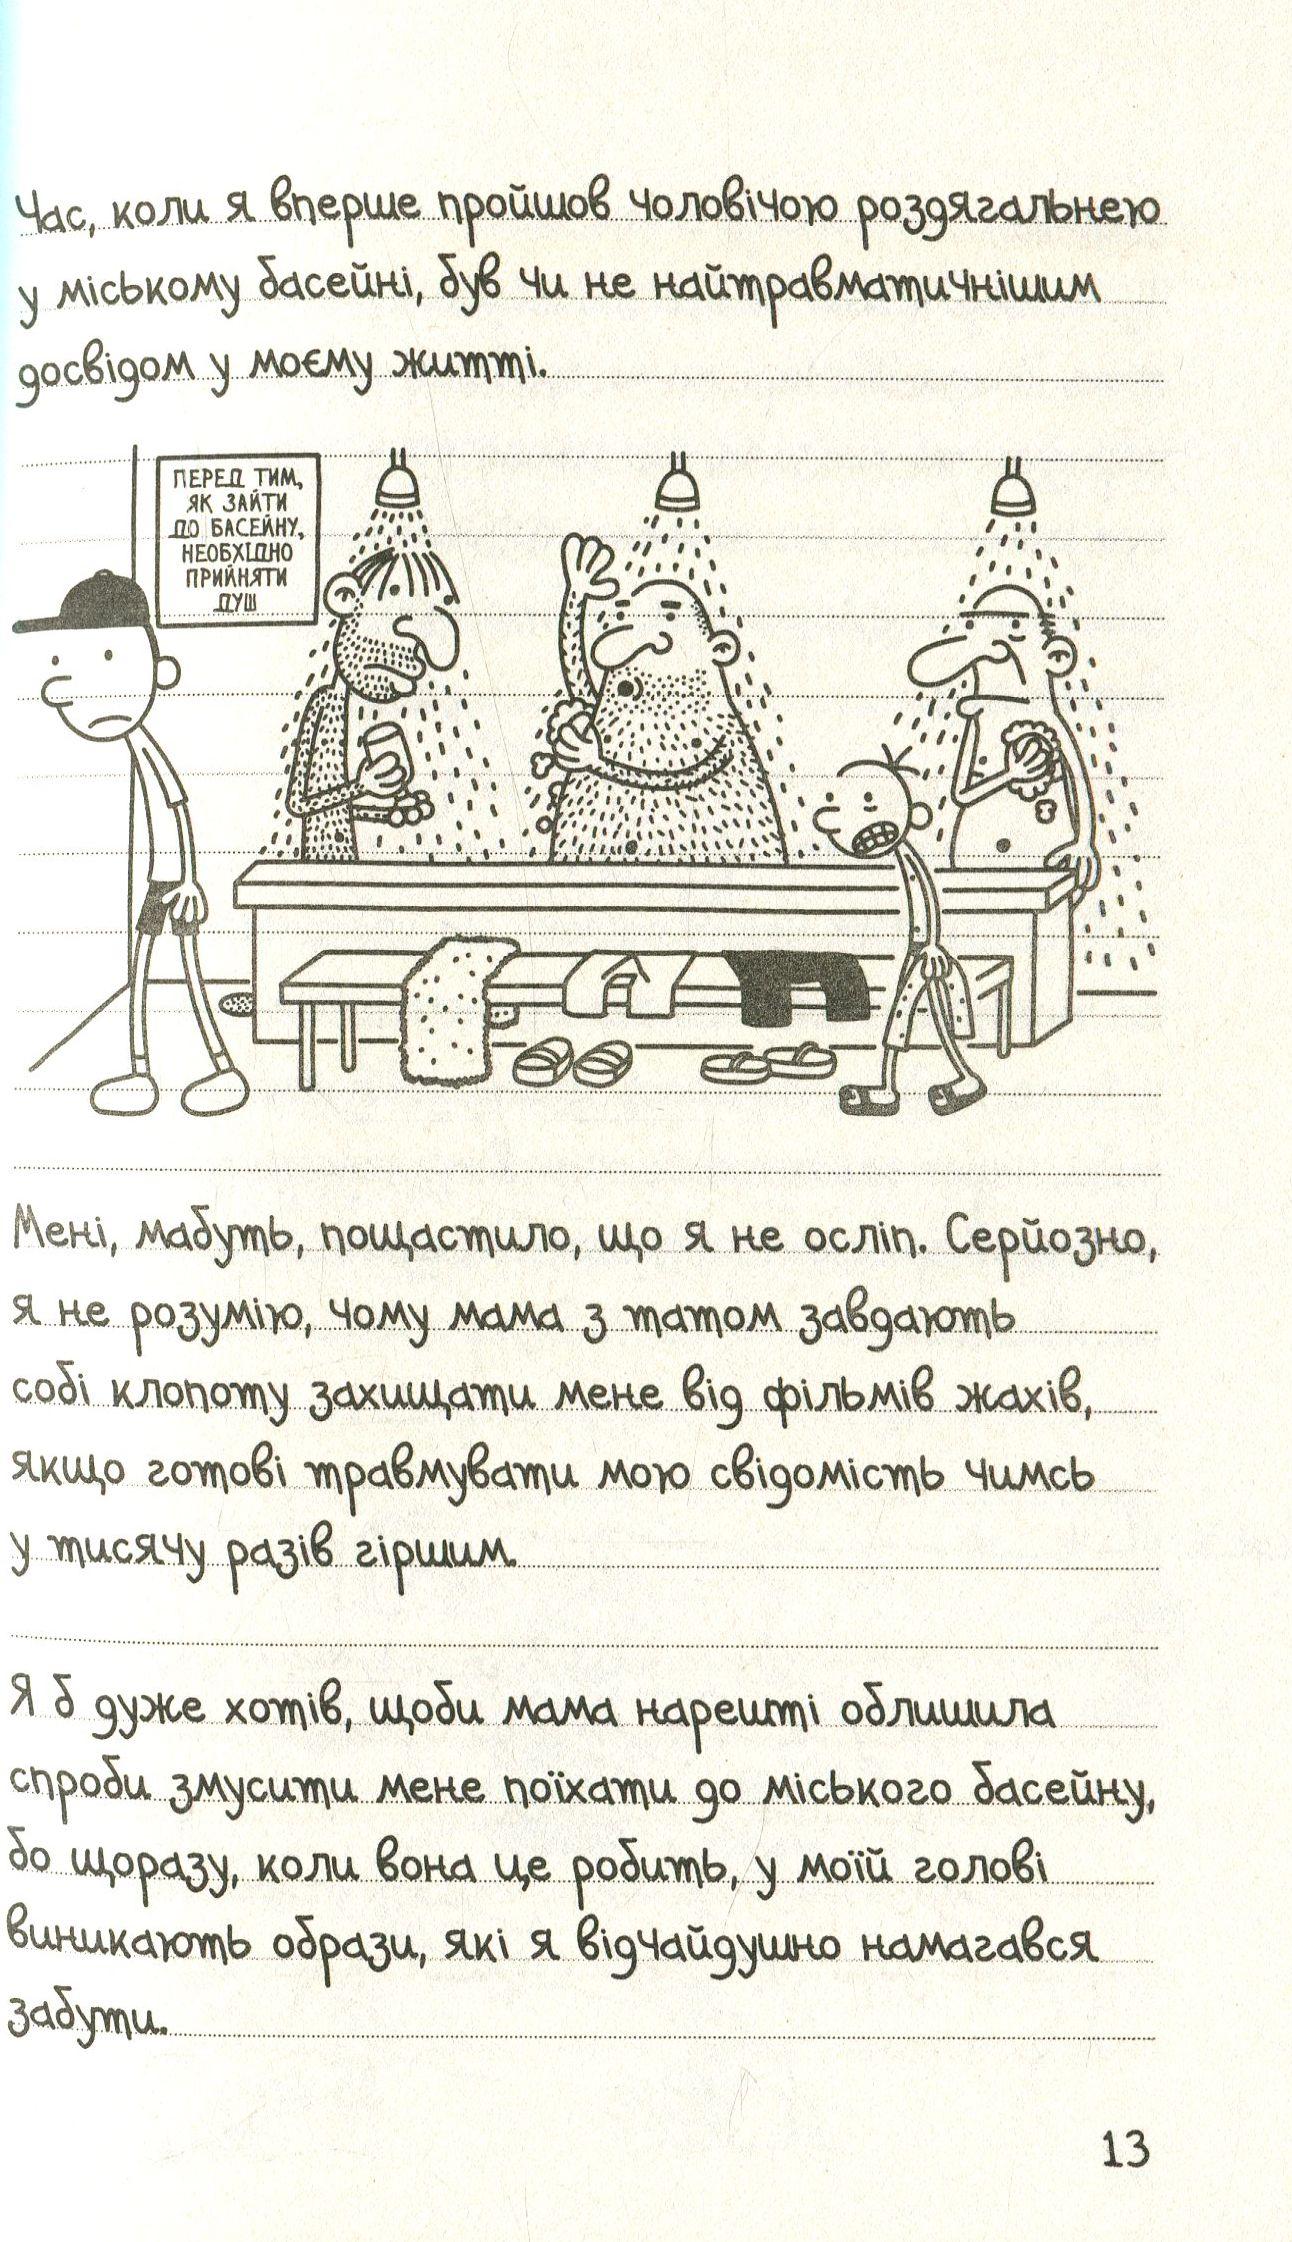 Час, коли я вперше пройшов чоловічою роздягальнею
у міському басейні, був чи не найтравматичнішим
досвідом у моєму житті.
ПЕРЕД ТИМ,
ЯК ЗАЙТИ
ДО БАСЕЙНУ,
НЕОБХІДНО
ПРИЙНЯТИ
ДУШ
Мені, мабуть, пощастило, що я не осліп. Серйозно,
я не розумію, чому мама з татом завдають
собі клопоту захищати мене від фільмів жахів,
якщо готові травмувати мою свідомість чимсь
у тисячу разів гіршим.
Я б дуже хотів, щоби мама нарешті облишила
спроби змусити мене поїхати до міського басейну,
бо щоразу, коли вона це робить, у моїй голові
виникають образи, які я відчайдушно намагався
забути.
13